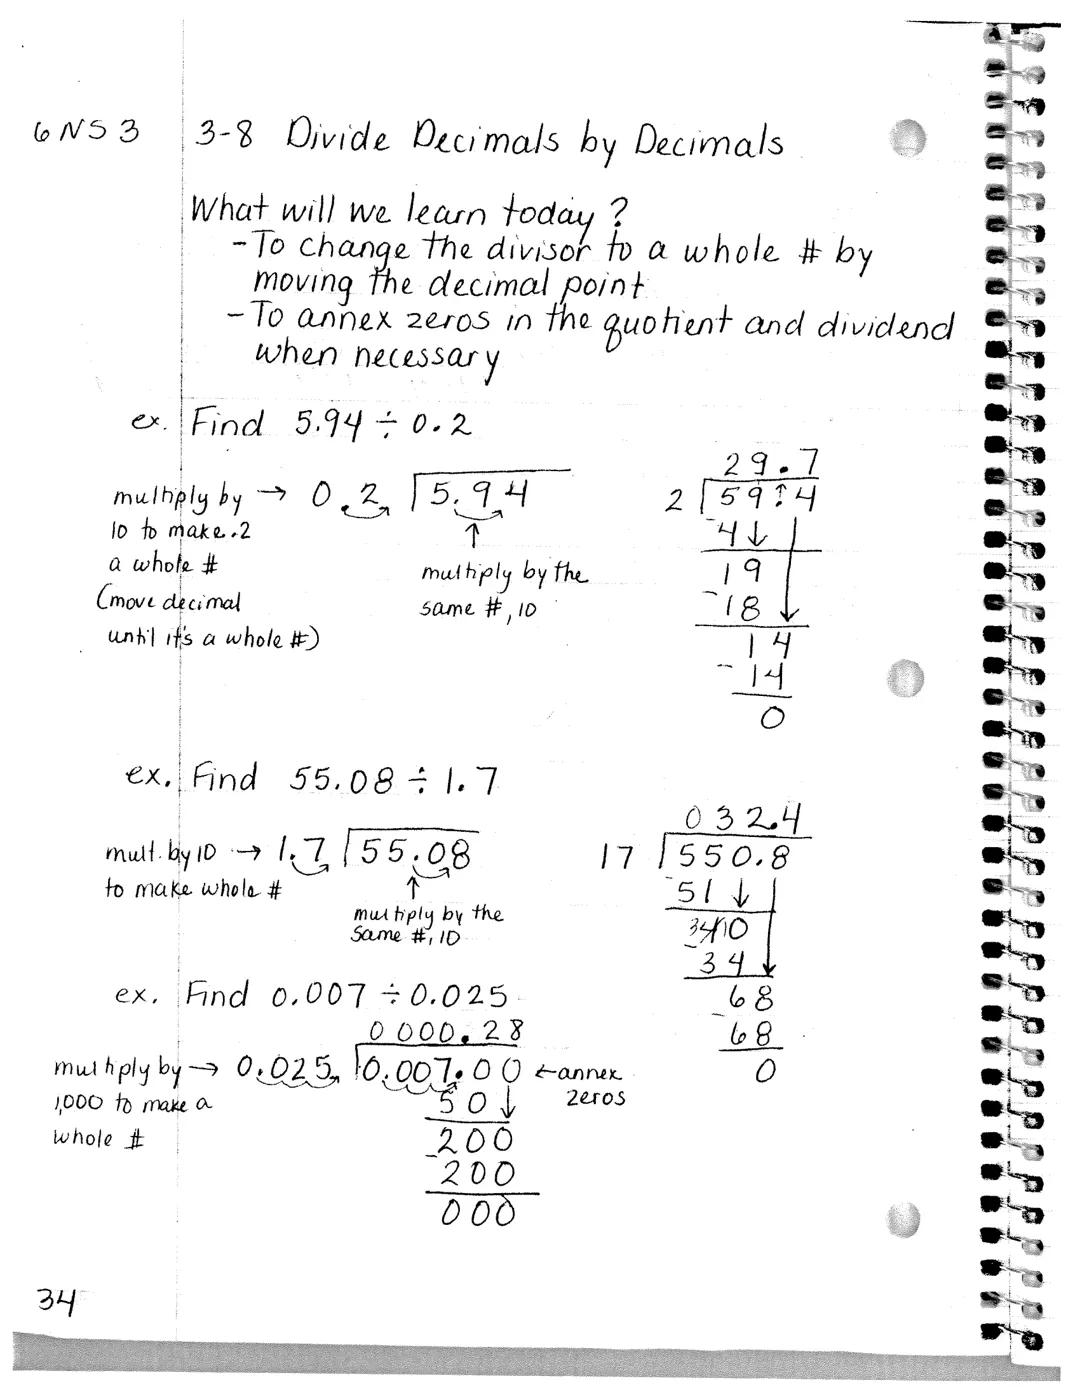 6NS3 3-8 Divide Decimals by Decimals
What will we learn today?
-To change the divisor to a whole # by
moving the decimal point
-To annex zeros in the quotient and dividend
when necessary
ex. Find 5.94 ÷ 0.2
multiply by → 0.2 5.94
10 to make .2
a whole #
(move decimal
until it's a whole #)
↑
multiply by the
same #, 10
29.7
2 59.4
-4
19
-18
14
-14
0
ex. Find 55.08 ÷ 1.7
mult. by 10 → 1.7 55.08
to make whole #
↑
multiply by the
same #, 10
032.4
17 550.8
-51
-34
68
-68
0
ex. Find 0.007 ÷ 0.025
0000.28
multiply by → 0.025 0.007.00 ← annex
zeros
1,000 to make a
whole #
50
200
-200
000
34